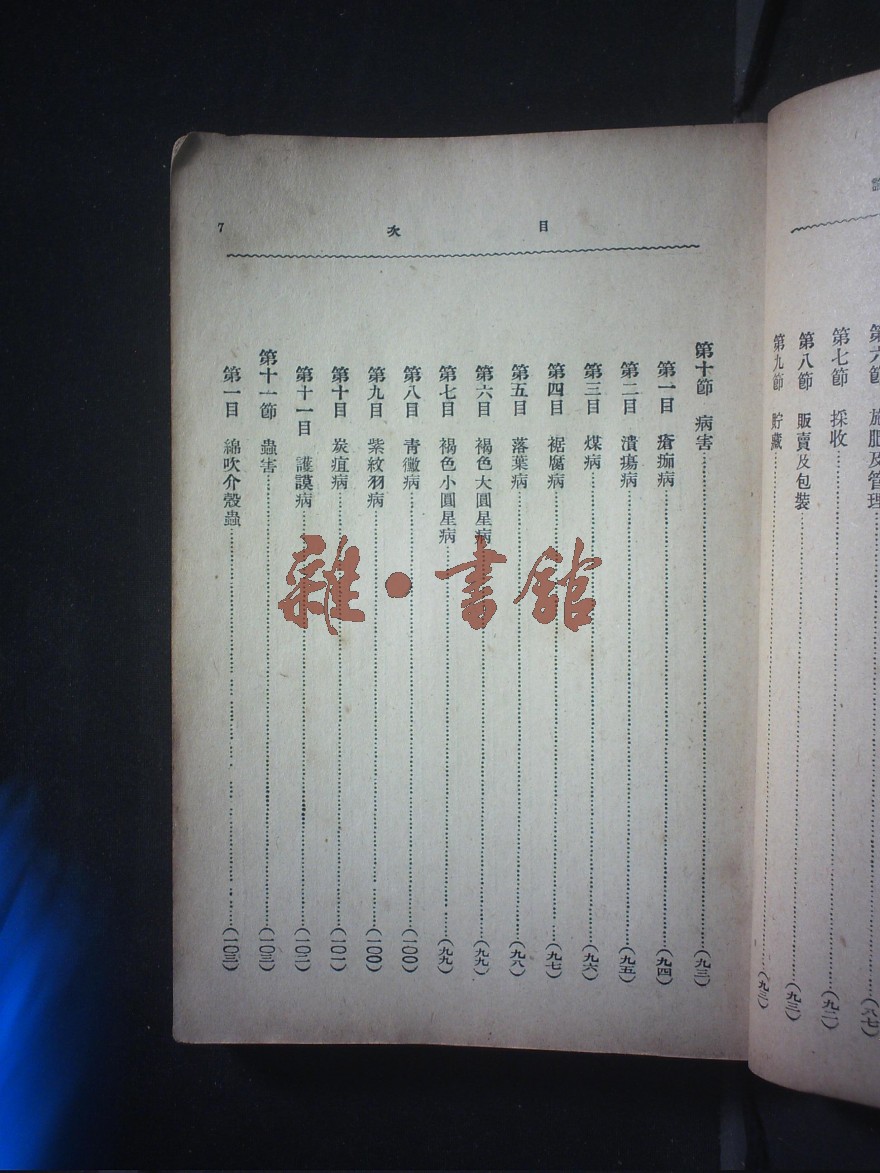 第六節　施肥及管理……(六七)
第七節　採收……(九二)
第八節　販賣及包裝……(九三)
第九節　貯藏……(九三)
目　次　7
第十節　病害……(九三)
第一目　瘡痂病……(九四)
第二目　潰瘍病……(九五)
第三目　煤病……(九六)
第四目　裾腐病……(九七)
第五目　落葉病……(九八)
第六目　褐色大圓星病……(九九)
第七目　褐色小圓星病……(九九)
第八目　青黴病……(一〇〇)
第九目　紫紋羽病……(一〇〇)
第十目　炭疽病……(一〇一)
第十一目　護謨病……(一〇二)
第十一節　蟲害……(一〇三)
第一目　綿吹介殼蟲……(一〇三)
雜·書館